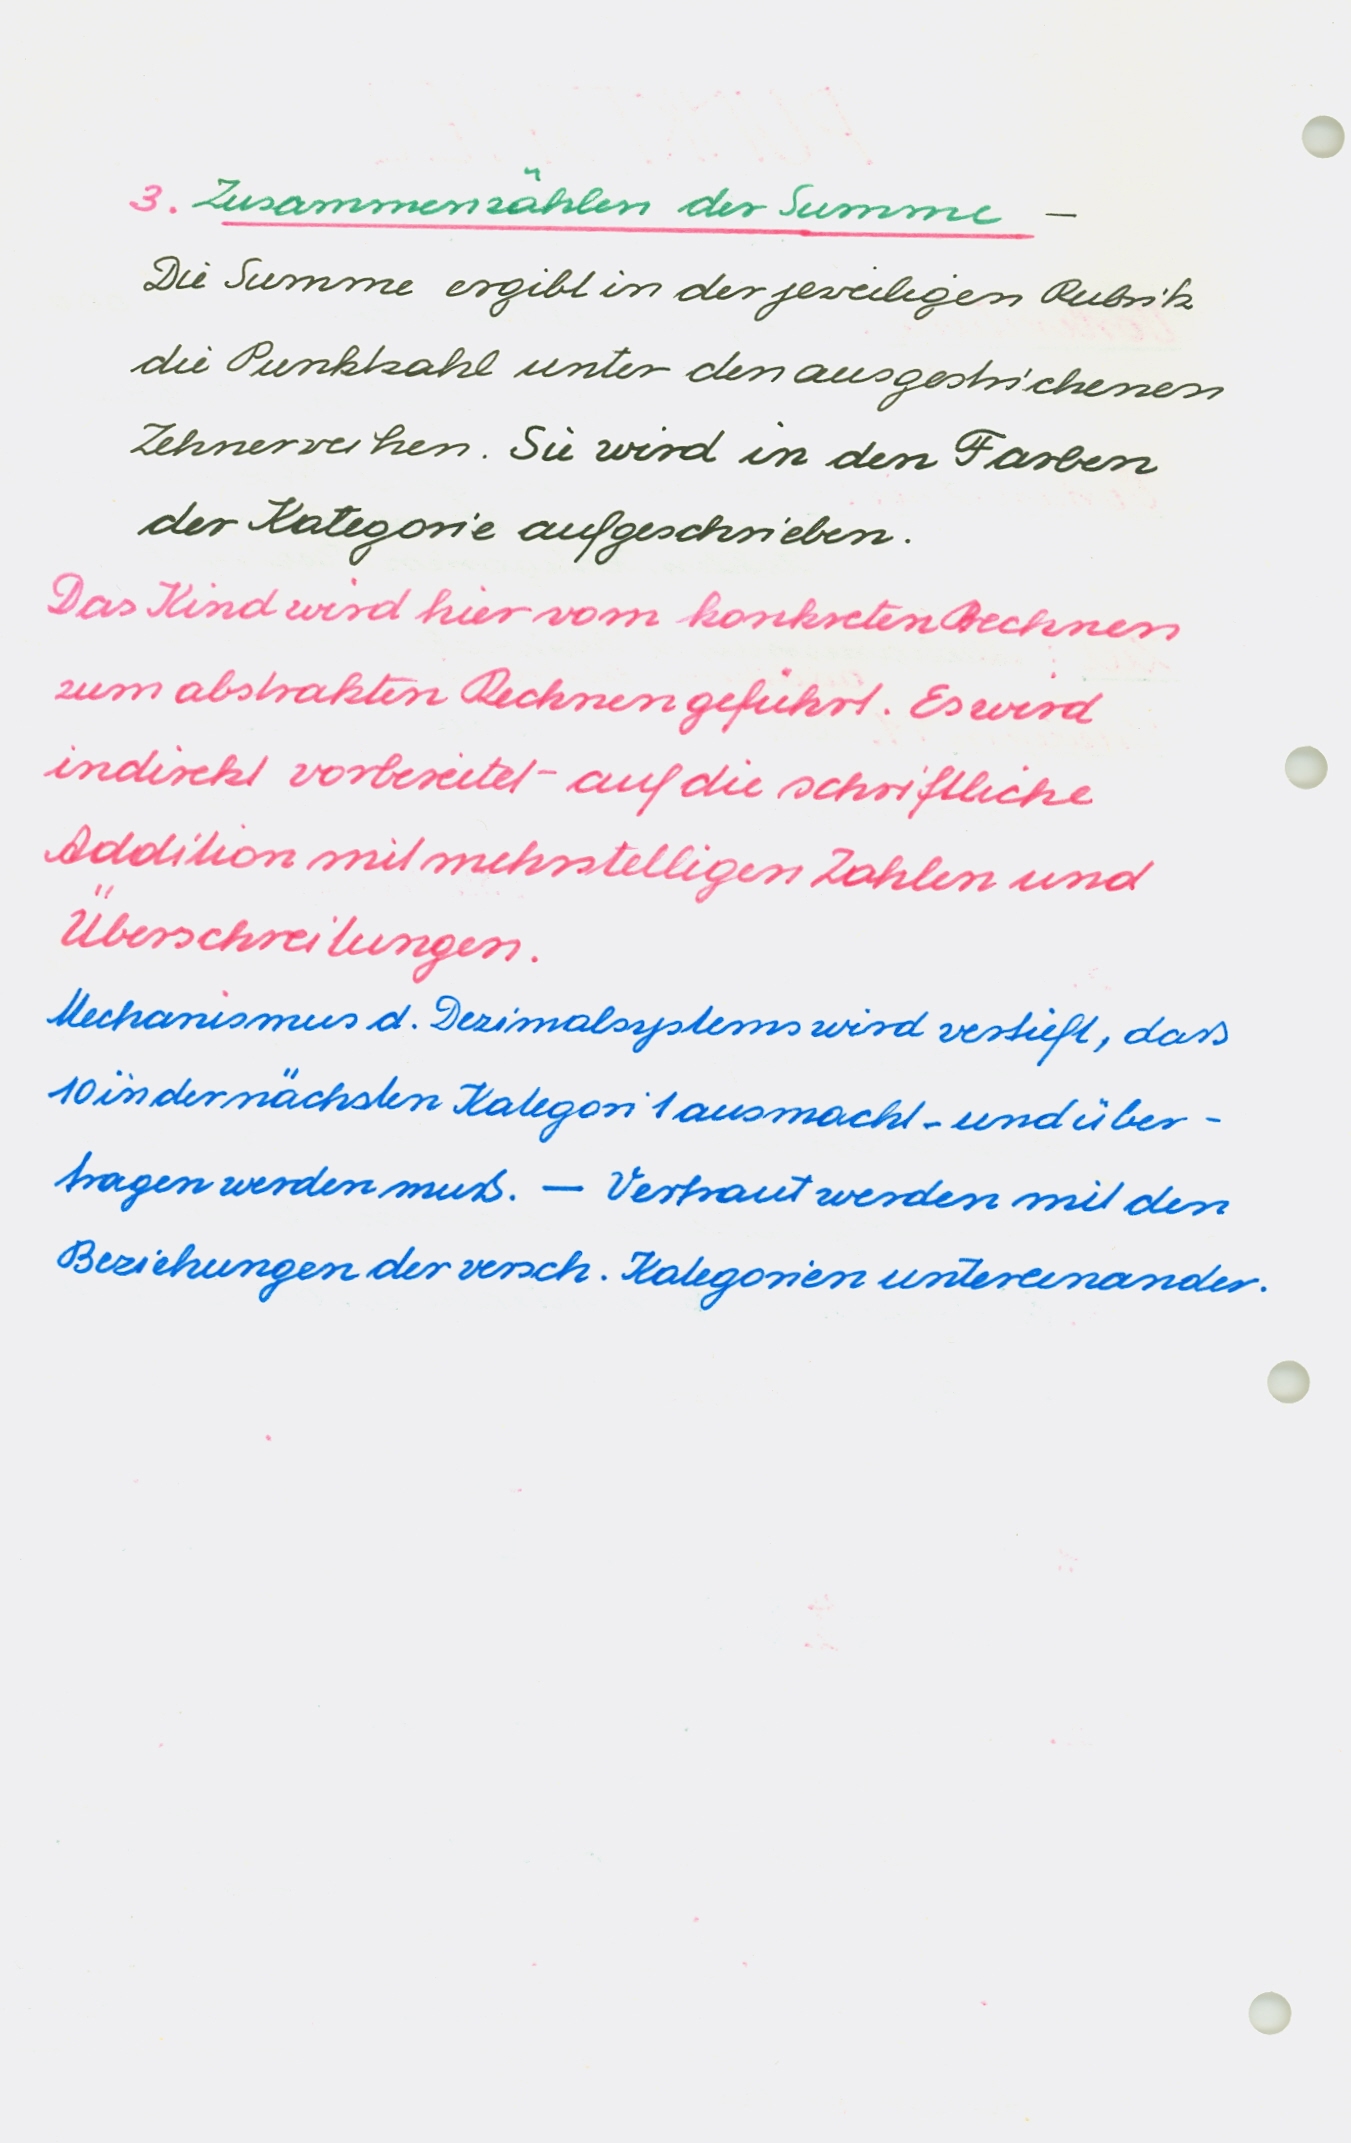 3. Zusammenzählen der Summe —
Die Summe ergibt in der jeweiligen Rubrik
die Punktzahl unter den ausgestrichenen
Zehnerreihen. Sie wird in den Farben
der Kategorie aufgeschrieben.
Das Kind wird hier vom konkreten Rechnen
zum abstrakten Rechnen geführt. Es wird
indirekt vorbereitet - auf die schriftliche
Addition mit mehrstelligen Zahlen und
Überschreitungen.
Mechanismus d. Dezimalsystems wird vertieft, dass
10 in der nächsten Kategori 1 ausmacht - und über -
tragen werden muß. — Vertraut werden mit den
Beziehungen der versch. Kategorien untereinander.